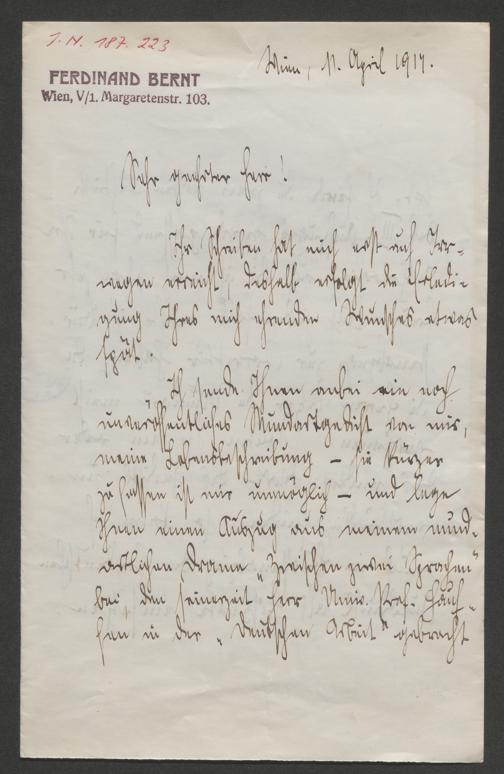 J. N. 187. 223
FERDINAND BERNT
Wien, V/1. Margaretenstr. 103.
Wien, 11. April 1917.
Sehr geehrter Herr!
Ihr Schreiben hat mich erst nach Irr-
wegen erreicht, deshalb erfolgt die Erledi-
gung Ihres mich ehrenden Wunsches etwas
spät.
Ich sende Ihnen anbei ein noch
unveröffentlichtes Mundartgedicht von mir,
meine Lebensbeschreibung – sie kürzer
zu fassen ist mir unmöglich – und lege
Ihnen einen Auszug aus meinem mund-
artlichen Drama „Zwischen zwei Sprachen"
bei den seinerzeit Herr Univ. Prof. Hauf-
fen in der „Deutschen Arbeit" gebracht